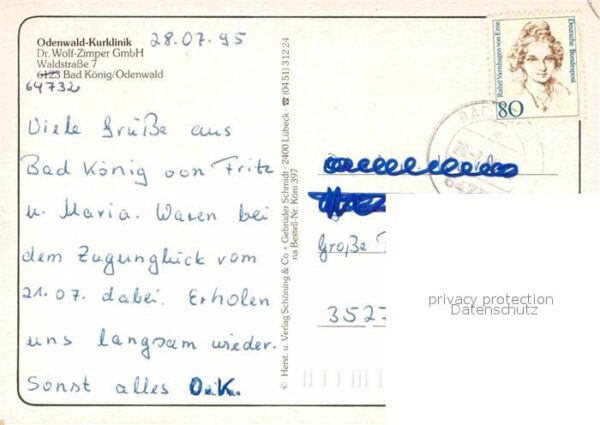 Odenwald-Kurklinik
28.07.95
Dr. Wolf-Zimper GmbH
Waldstraße 7
6123 Bad König/Odenwald
64732
Viele Grüße aus
Bad König von Fritz
u. Maria. Waren bei
dem Zugunglück vom
21.07. dabei. Erholen
uns langsam wieder.
Sonst alles O.K.
© Herst. u. Verlag Schöning & Co + Gebrüder Schmidt · 2400 Lübeck · ☎ (0451) 31224
na Bestell-Nr. Köni 397
Rahel Varnhagen von Ense
Deutsche Bundespost
80
Große
3527
privacy protection
Datenschutz